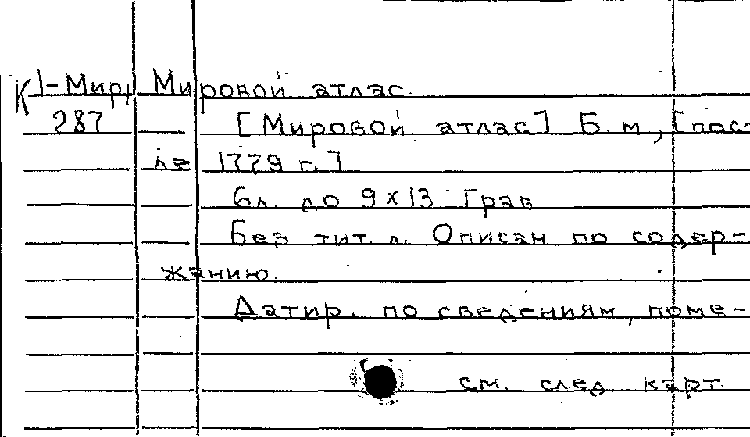 К 1-Мир Мировой атлас.
287 [Мировой атлас] Б. м., [пос-
ле 1779 г.]
6 л. до 9х13 Грав
Без тит. л. Описан по содер-
жанию.
Датир. по сведениям, поме-
см. след карт.